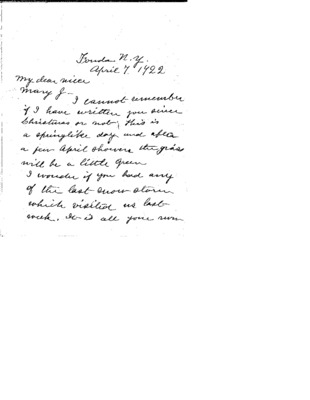 Fonda N.Y.
April 7. 1922
My dear niece
Mary J— I cannot remember
if I have written you since
Christmas or not, this is
a springlike day and after
a few April showers the grass
will be a little green
I wonder if you had any
of the last snow storm
which visited us last
week. It is all gone now